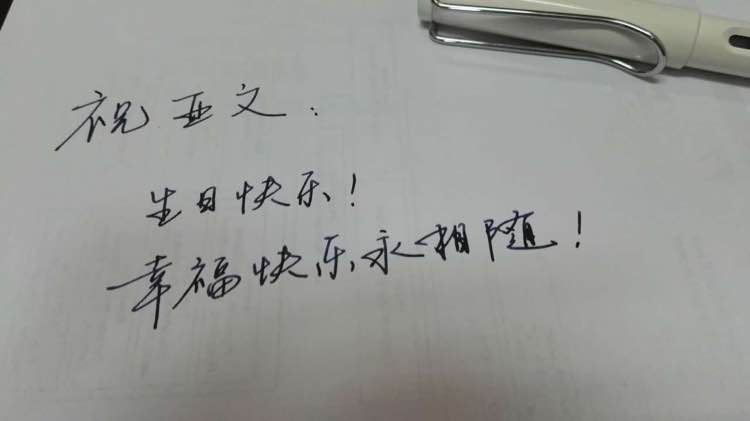 祝亚文:
生日快乐!
幸福快乐永相随!